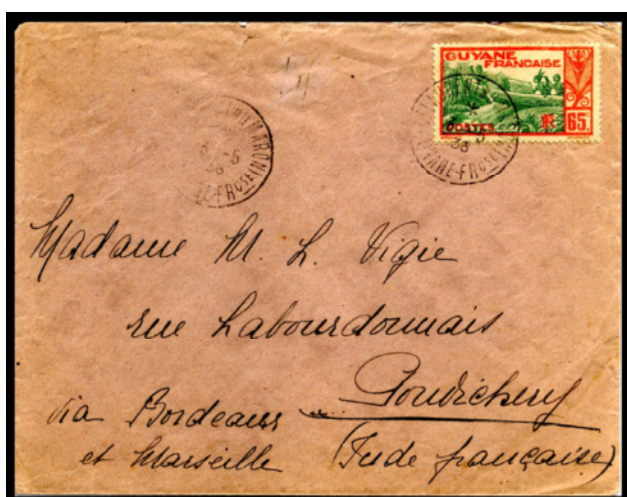 GUYANE
FRANÇAISE
POSTES RF 65c
6-5
36
GUYANE FRÇSE
Madame M. L. Vigie
rue Labourdonnais
Pondichery
via Bordeaux
et Marseille (Inde française)